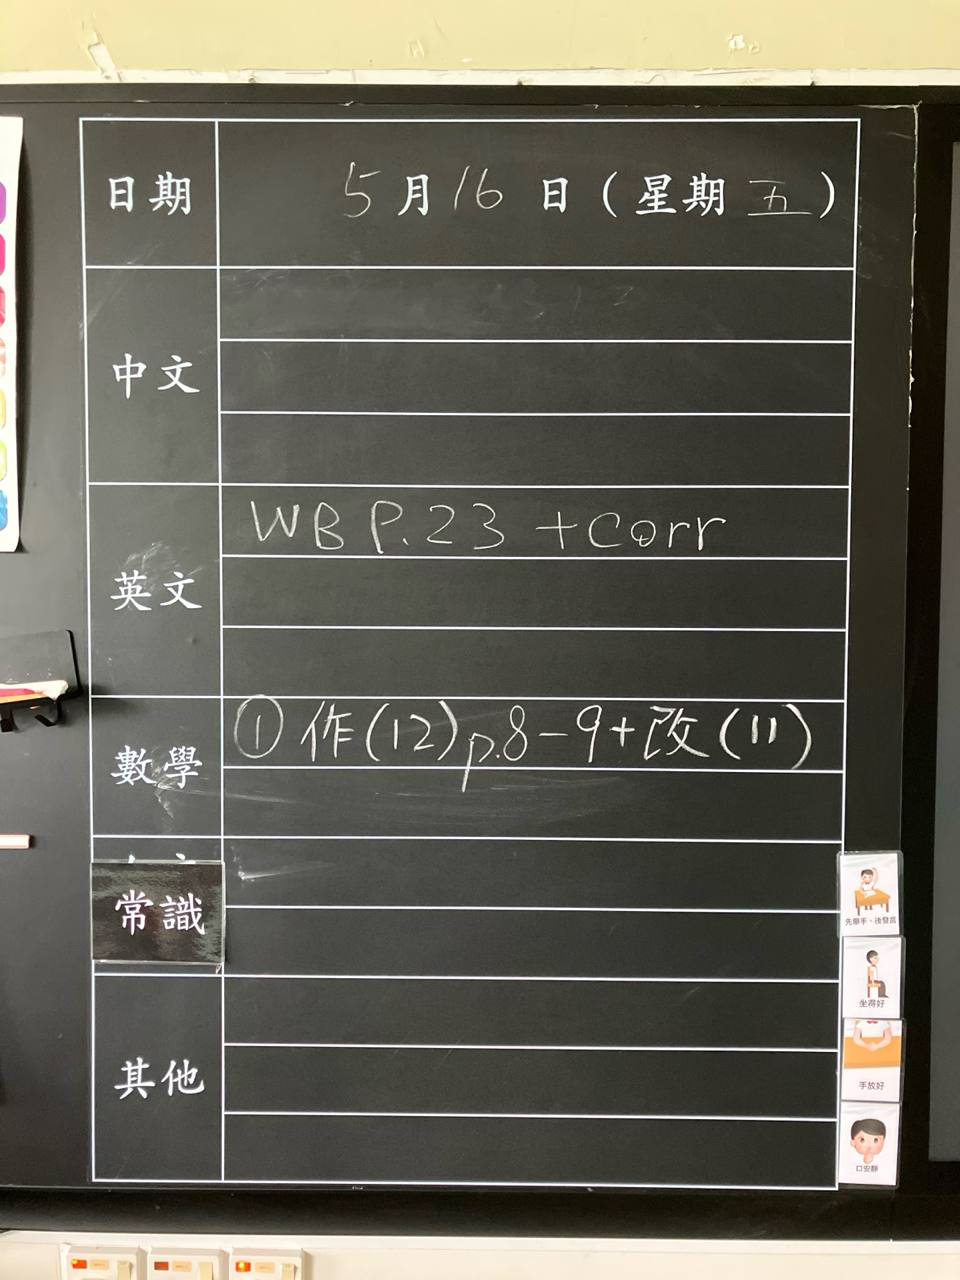 日期 5月16日(星期五)
中文
英文 WB P.23 +corr
數學 ①作(12)p.8-9+改(11)
常識
其他
先舉手、後發言
坐得好
手放好
口安靜